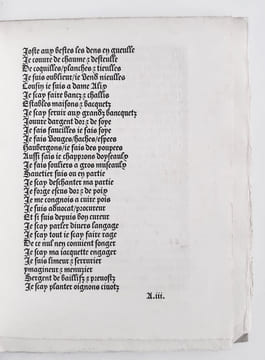 Joste auy bestes les dens en gueulle
Je couure de chaume z desteulle
De coquilles/planches z tieulles
Je suis oublieur/ie vend nieulles
Cousin ie suis a dame Aliz
Je scay faire bancz z challis
Establez maisons z bacquetz
Je scay seruir aux grandz bancquetz
Jouure dargent dor z de soye
Je fais faucilles ie fais soye
Je fais vouges/haches/espees
Haubergons/ie fais des poupees
Aussi fais ie chappons doyseaulx
Je fais souliers a gros museaulx
Sauetier suis ou en partie
Je scay deschanter ma partie
Je forge escus dor z de poix
Je me congnois a cuire pois
Je suis aduocat/procureur
Et si suis depuis boy cureur
Je scay parler diuers langage
Je scay tout ie scay faire rage
De ce nul nen conuient songer
Je scay ma iacquette engager
Je suis limeur z serrurier
ymagineur z menuzier
Sergent de baillifz z preuostz
Je scay planter oignons ciuotz
A.iii.